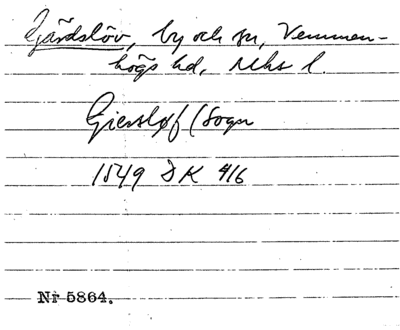 Gärdslöv, by och sn, Vemmen-
högs hd, Mhs l.
Giersløf (Sogn
1549 DK 4/6
Nr 5864.